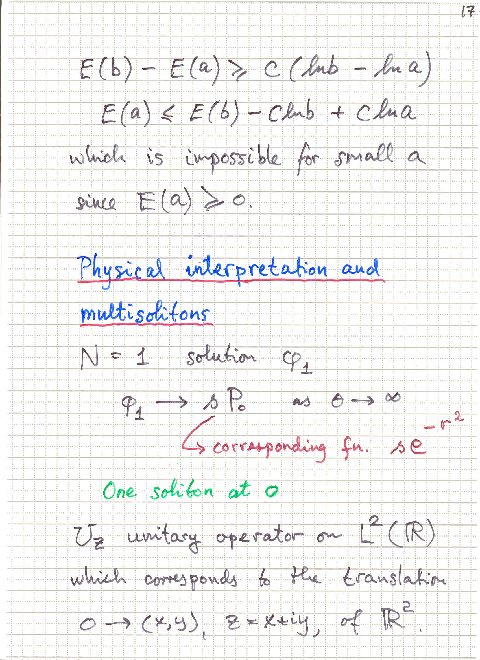 17
E(b) - E(a) ⩾ C (ln b - ln a)
E(a) ⩽ E(b) - C ln b + C ln a
which is impossible for small a
since E(a) ⩾ 0.
Physical interpretation and
multisolitons
N = 1 solution φ₁
φ₁ → s P₀ as θ → ∞
↳ corresponding fn. s e^{-r²}
One soliton at 0
U_z unitary operator on L²(ℝ)
which corresponds to the translation
0 → (x,y), z = x+iy, of ℝ².